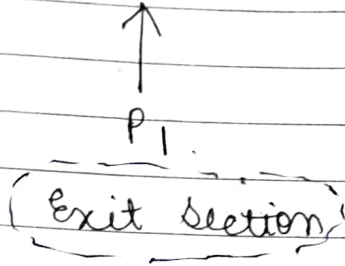 P1
Exit section